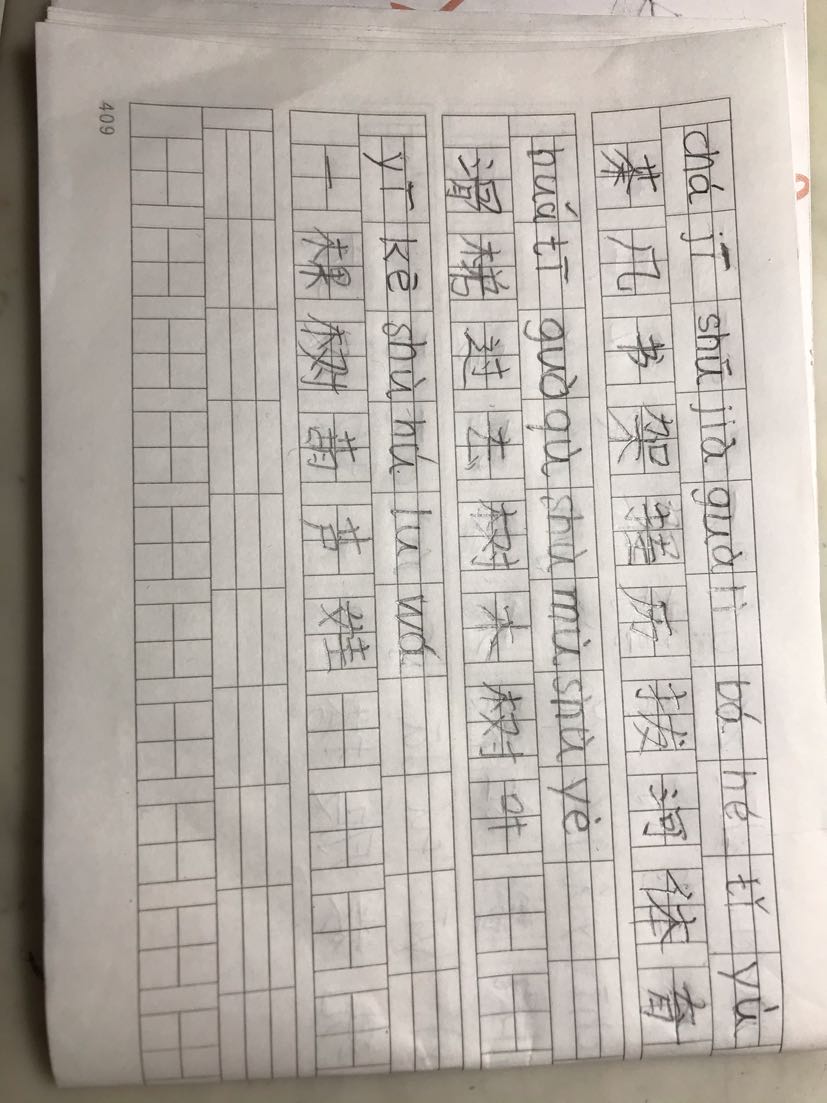 chá jī shū jià guà lì bá hé tǐ yù
茶几书架挂历拔河体育
huá tī guò qù shù mù shù yè
滑梯过去树木树叶
yī kē shù hú lu wá
一棵树葫芦娃
409